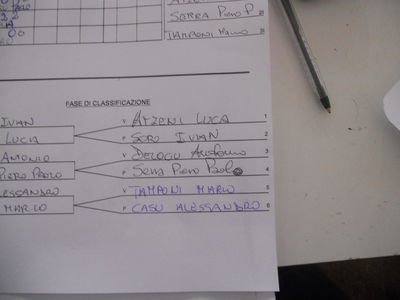 SERRA Piero P
TAMPONI Marco
FASE DI CLASSIFICAZIONE
IVAN
V ATZENI LUCA 1
LUCA
P SORO IVAN 2
ANTONIO
V DELOGU Antonio 3
PIERO PAOLO
P Serra Piero Paolo 4
ALESSANDRO
V TAMPONI MARCO 5
MARCO
P CASU ALESSANDRO 6